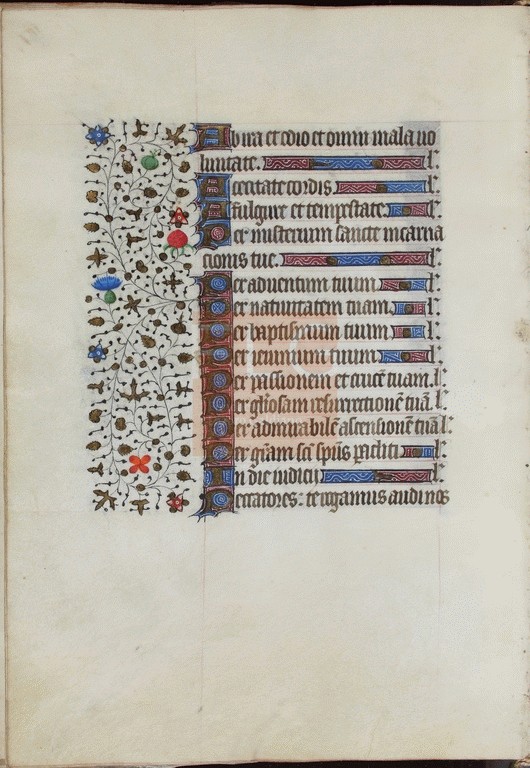 Ab ira et odio et omni mala uo
luntate. l:
A cecitate cordis l:
A fulgure et tempestate l:
Per misterium sancte incarna
cionis tue. l:
Per aduentum tuum l:
Per natiuitatem tuam l:
Per baptismum tuum l:
Per ieiunium tuum l:
Per passionem et crucē tuam. l:
Per gl̄iosam resurrectionē tuā. l:
Per admirabilē ascensionē tuā l:
Per grām sc̄i sp̄us ꝑacliti l:
In die iudicij l:
Peccatores: te rogamus audi nos